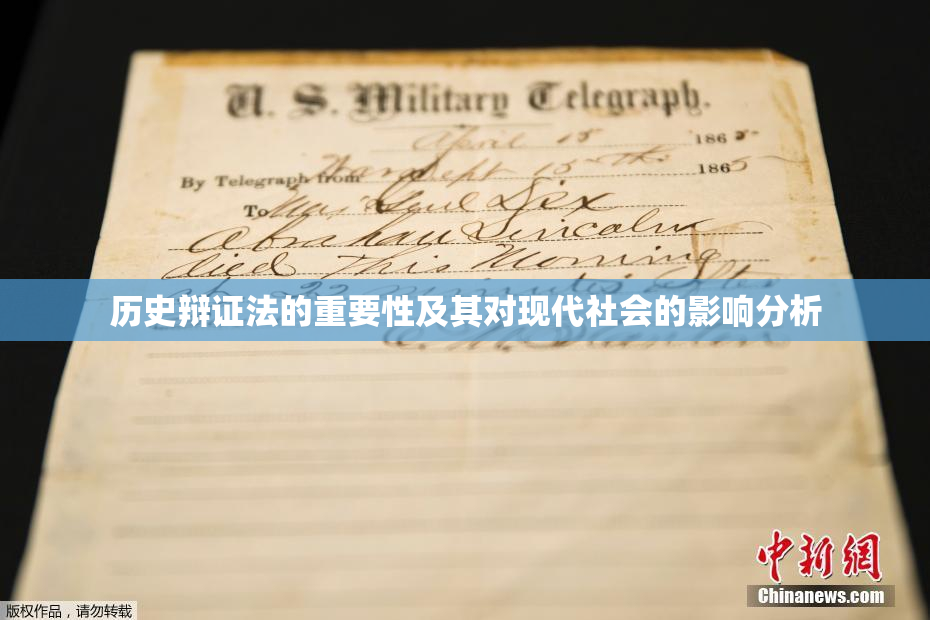 U. S. Military Telegraph.
April 15 1865
By Telegraph from War Dept 15th 1865
To Maj Genl Dix
Abraham Lincoln
died This Morning
at 22 minutes after
历史辩证法的重要性及其对现代社会的影响分析
E. M. Stanton
中新網
Chinanews.com
版权作品，请勿转载